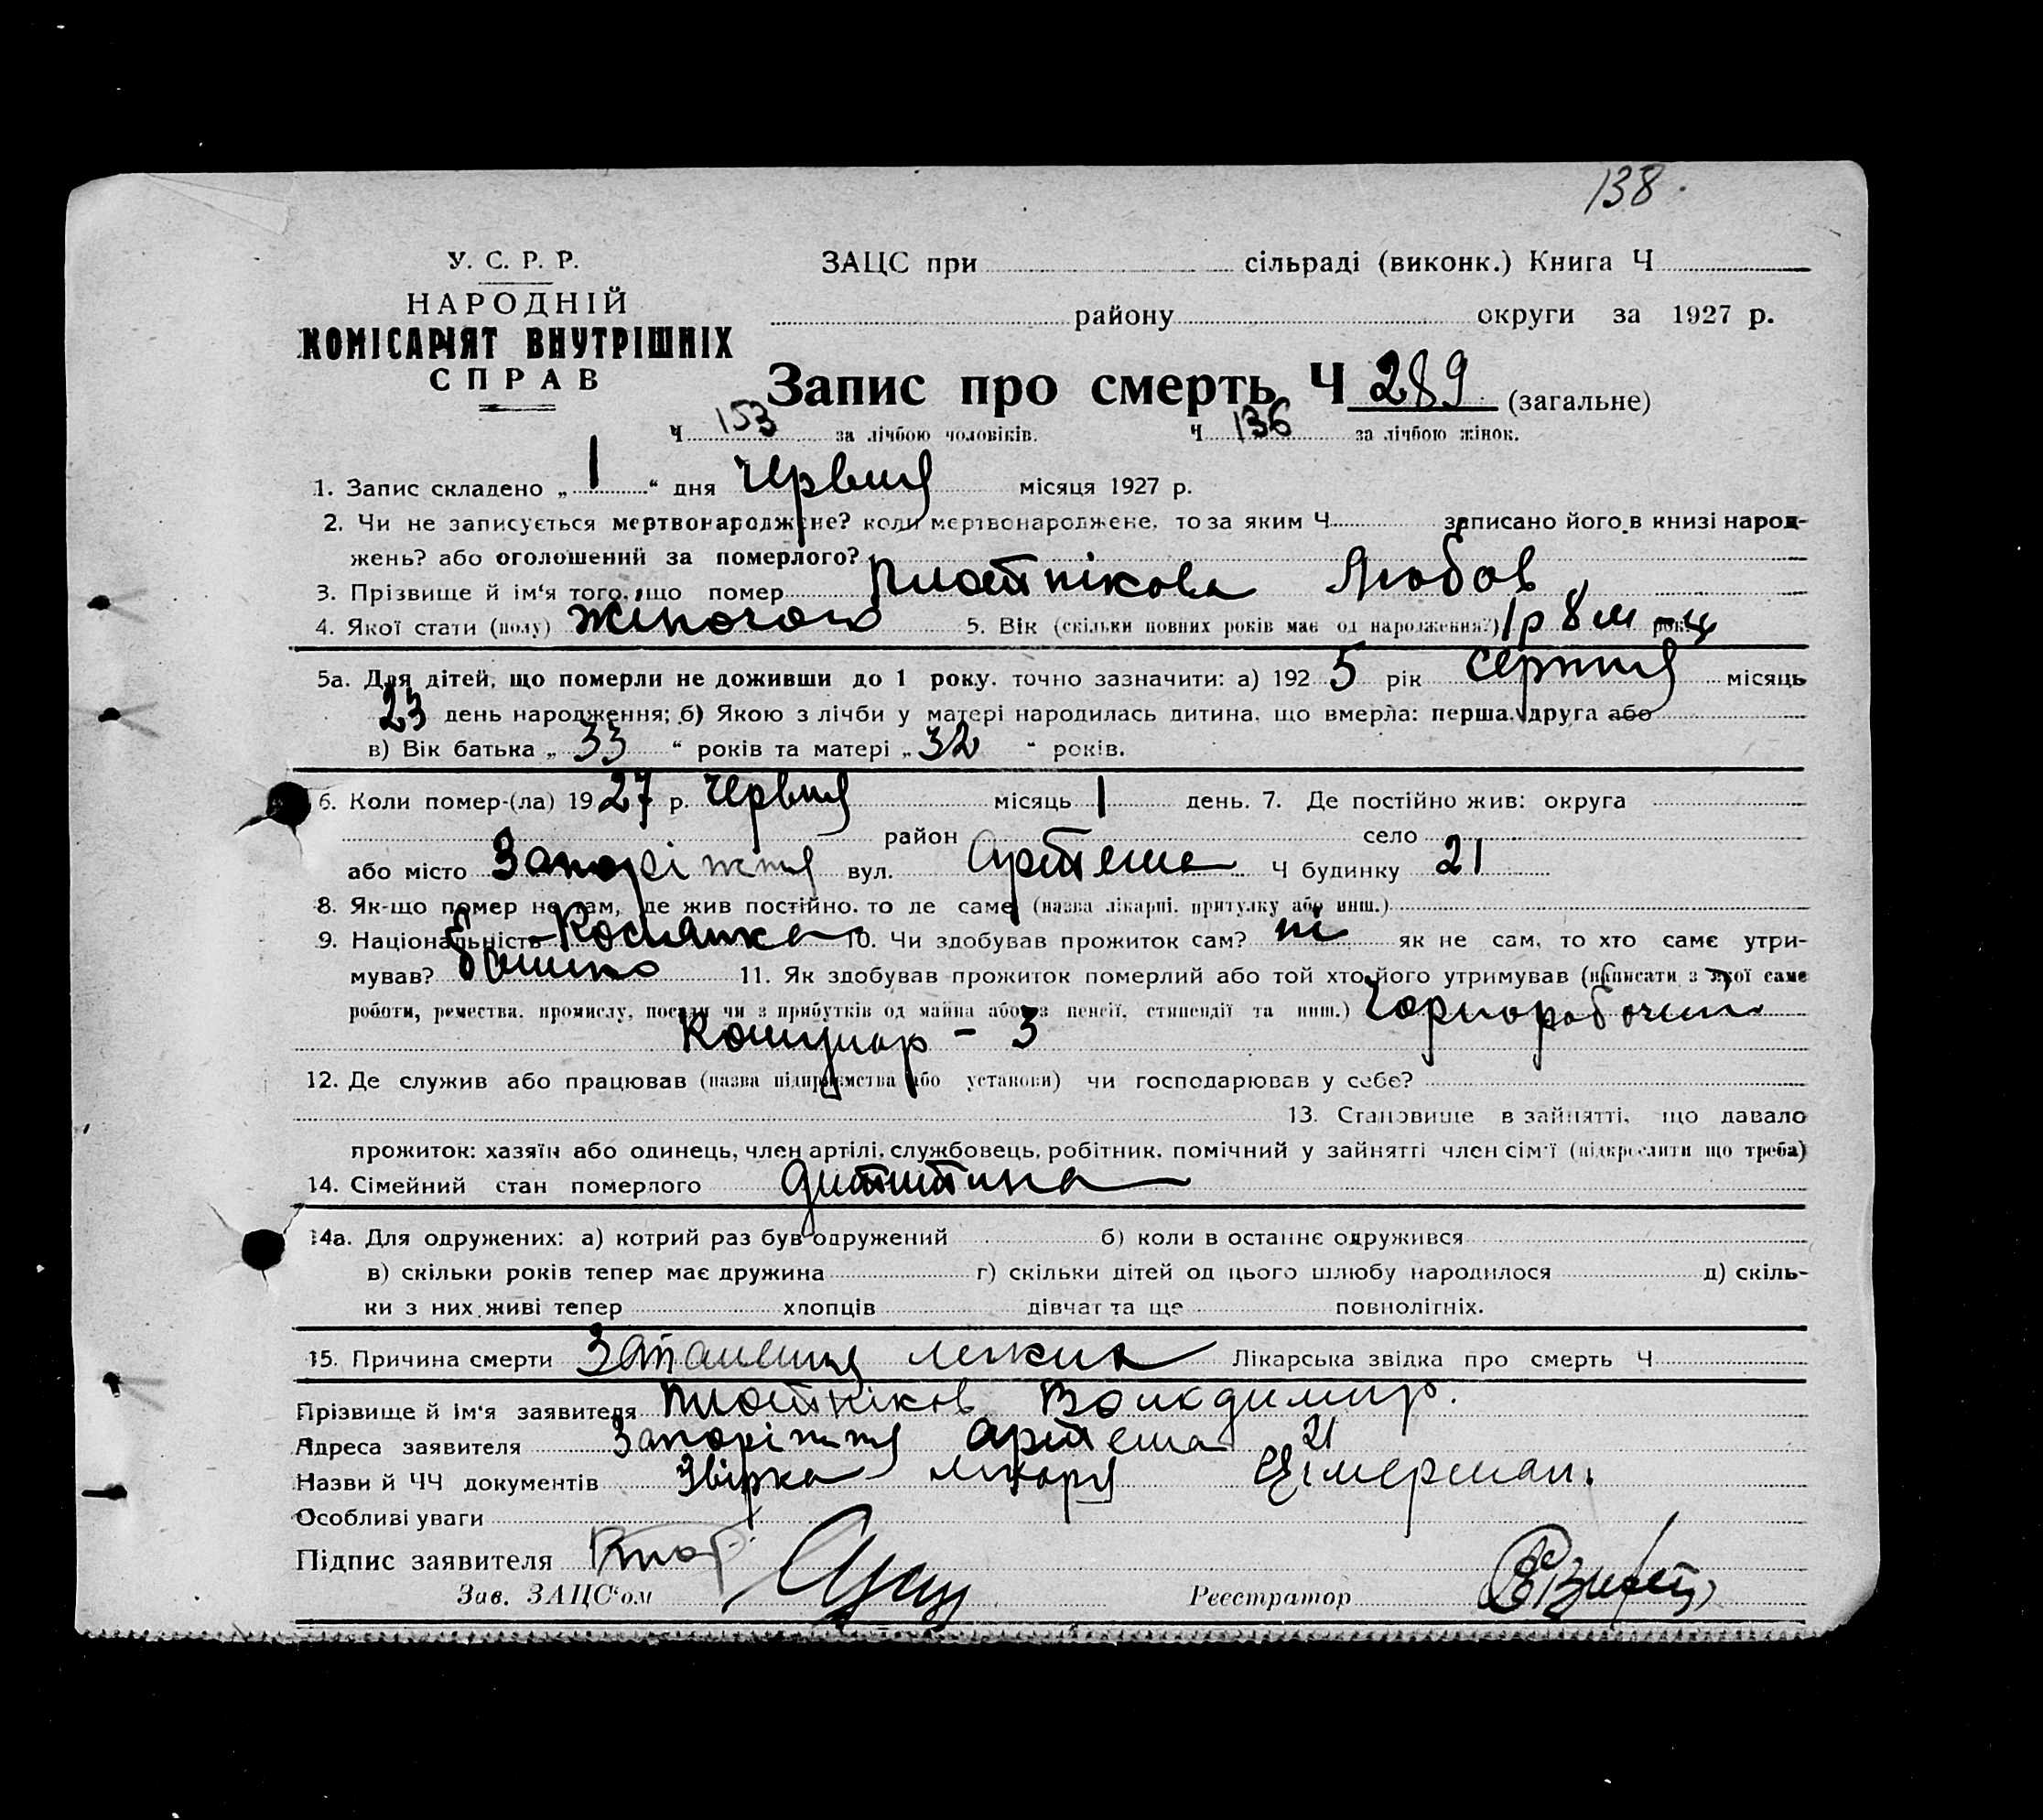 138.
У. С. Р. Р.
НАРОДНІЙ
КОМІСАРІЯТ ВНУТРІШНІХ
СПРАВ
ЗАЦС при сільраді (виконк.) Книга Ч
району округи за 1927 р.
Запис про смерть Ч 289 (загальне)
Ч 153 за лічбою чоловіків. Ч 136 за лічбою жінок.
1. Запис складено „1“ дня червня місяця 1927 р.
2. Чи не записується мертвонароджене? коли мертвонароджене, то за яким Ч записано його в книзі народ-
жень? або оголошений за померлого?
3. Прізвище й ім‘я того, що помер Плотнікова Любов
4. Якої стати (полу) жіночого 5. Вік (скільки повних років має од народження?) 1 р 8 м-ц рок.
5а. Для дітей, що померли не доживши до 1 року. точно зазначити: а) 1925 рік серпня місяць
23 день народження; б) Якою з лічби у матері народилась дитина, що вмерла: перша, друга або
в) Вік батька „33“ років та матері „32“ років.
6. Коли помер-(ла) 1927 р. червня місяць 1 день. 7. Де постійно жив: округа
район село
або місто Запоріжжя вул. Артема Ч будинку 21
8. Як-що помер не там, де жив постійно, то де саме (назва лікарні, притулку або инш.)
9. Національність Росіянка 10. Чи здобував прожиток сам? ні як не сам, то хто саме утри-
мував? батько 11. Як здобував прожиток померлий або той хто його утримував (написати з якої саме
роботи, ремества, промислу, посади чи з прибутків од майна або з пенсії, стипендії та инш.) Чорноробочий
Комунар - 3
12. Де служив або працював (назва підприємства або установи) чи господарював у себе?
13. Становище в зайнятті, що давало
прожиток: хазяїн або одинець, член артілі, службовець, робітник, помічний у зайнятті член сім‘ї (підкреслити що треба)
14. Сімейний стан померлого дититина
14а. Для одружених: а) котрий раз був одружений б) коли в останнє одружився
в) скільки років тепер має дружина г) скільки дітей од цього шлюбу народилося д) скіль-
ки з них живі тепер хлопців дівчат та ще повнолітніх.
15. Причина смерти Запаления легких Лікарська звідка про смерть Ч
Прізвище й ім‘я заявителя Плотніков Володимир.
Адреса заявителя Запоріжжя Артема 21
Назви й ЧЧ документів Звірка лікаря Цімерман.
Особливі уваги
Підпис заявителя
Зав. ЗАЦС‘ом Реєстратор